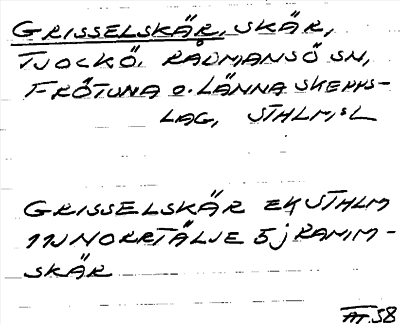 GRISSELSKÄR, SKÄR,
TJOCKÖ, RÅDMANSÖ SN,
FRÖTUNA O. LÄNNA SKEPPS-
LAG, STHLM:S L
GRISSELSKÄR EK STHLM
11J NORRTÄLJE 5j RAMM-
SKÄR